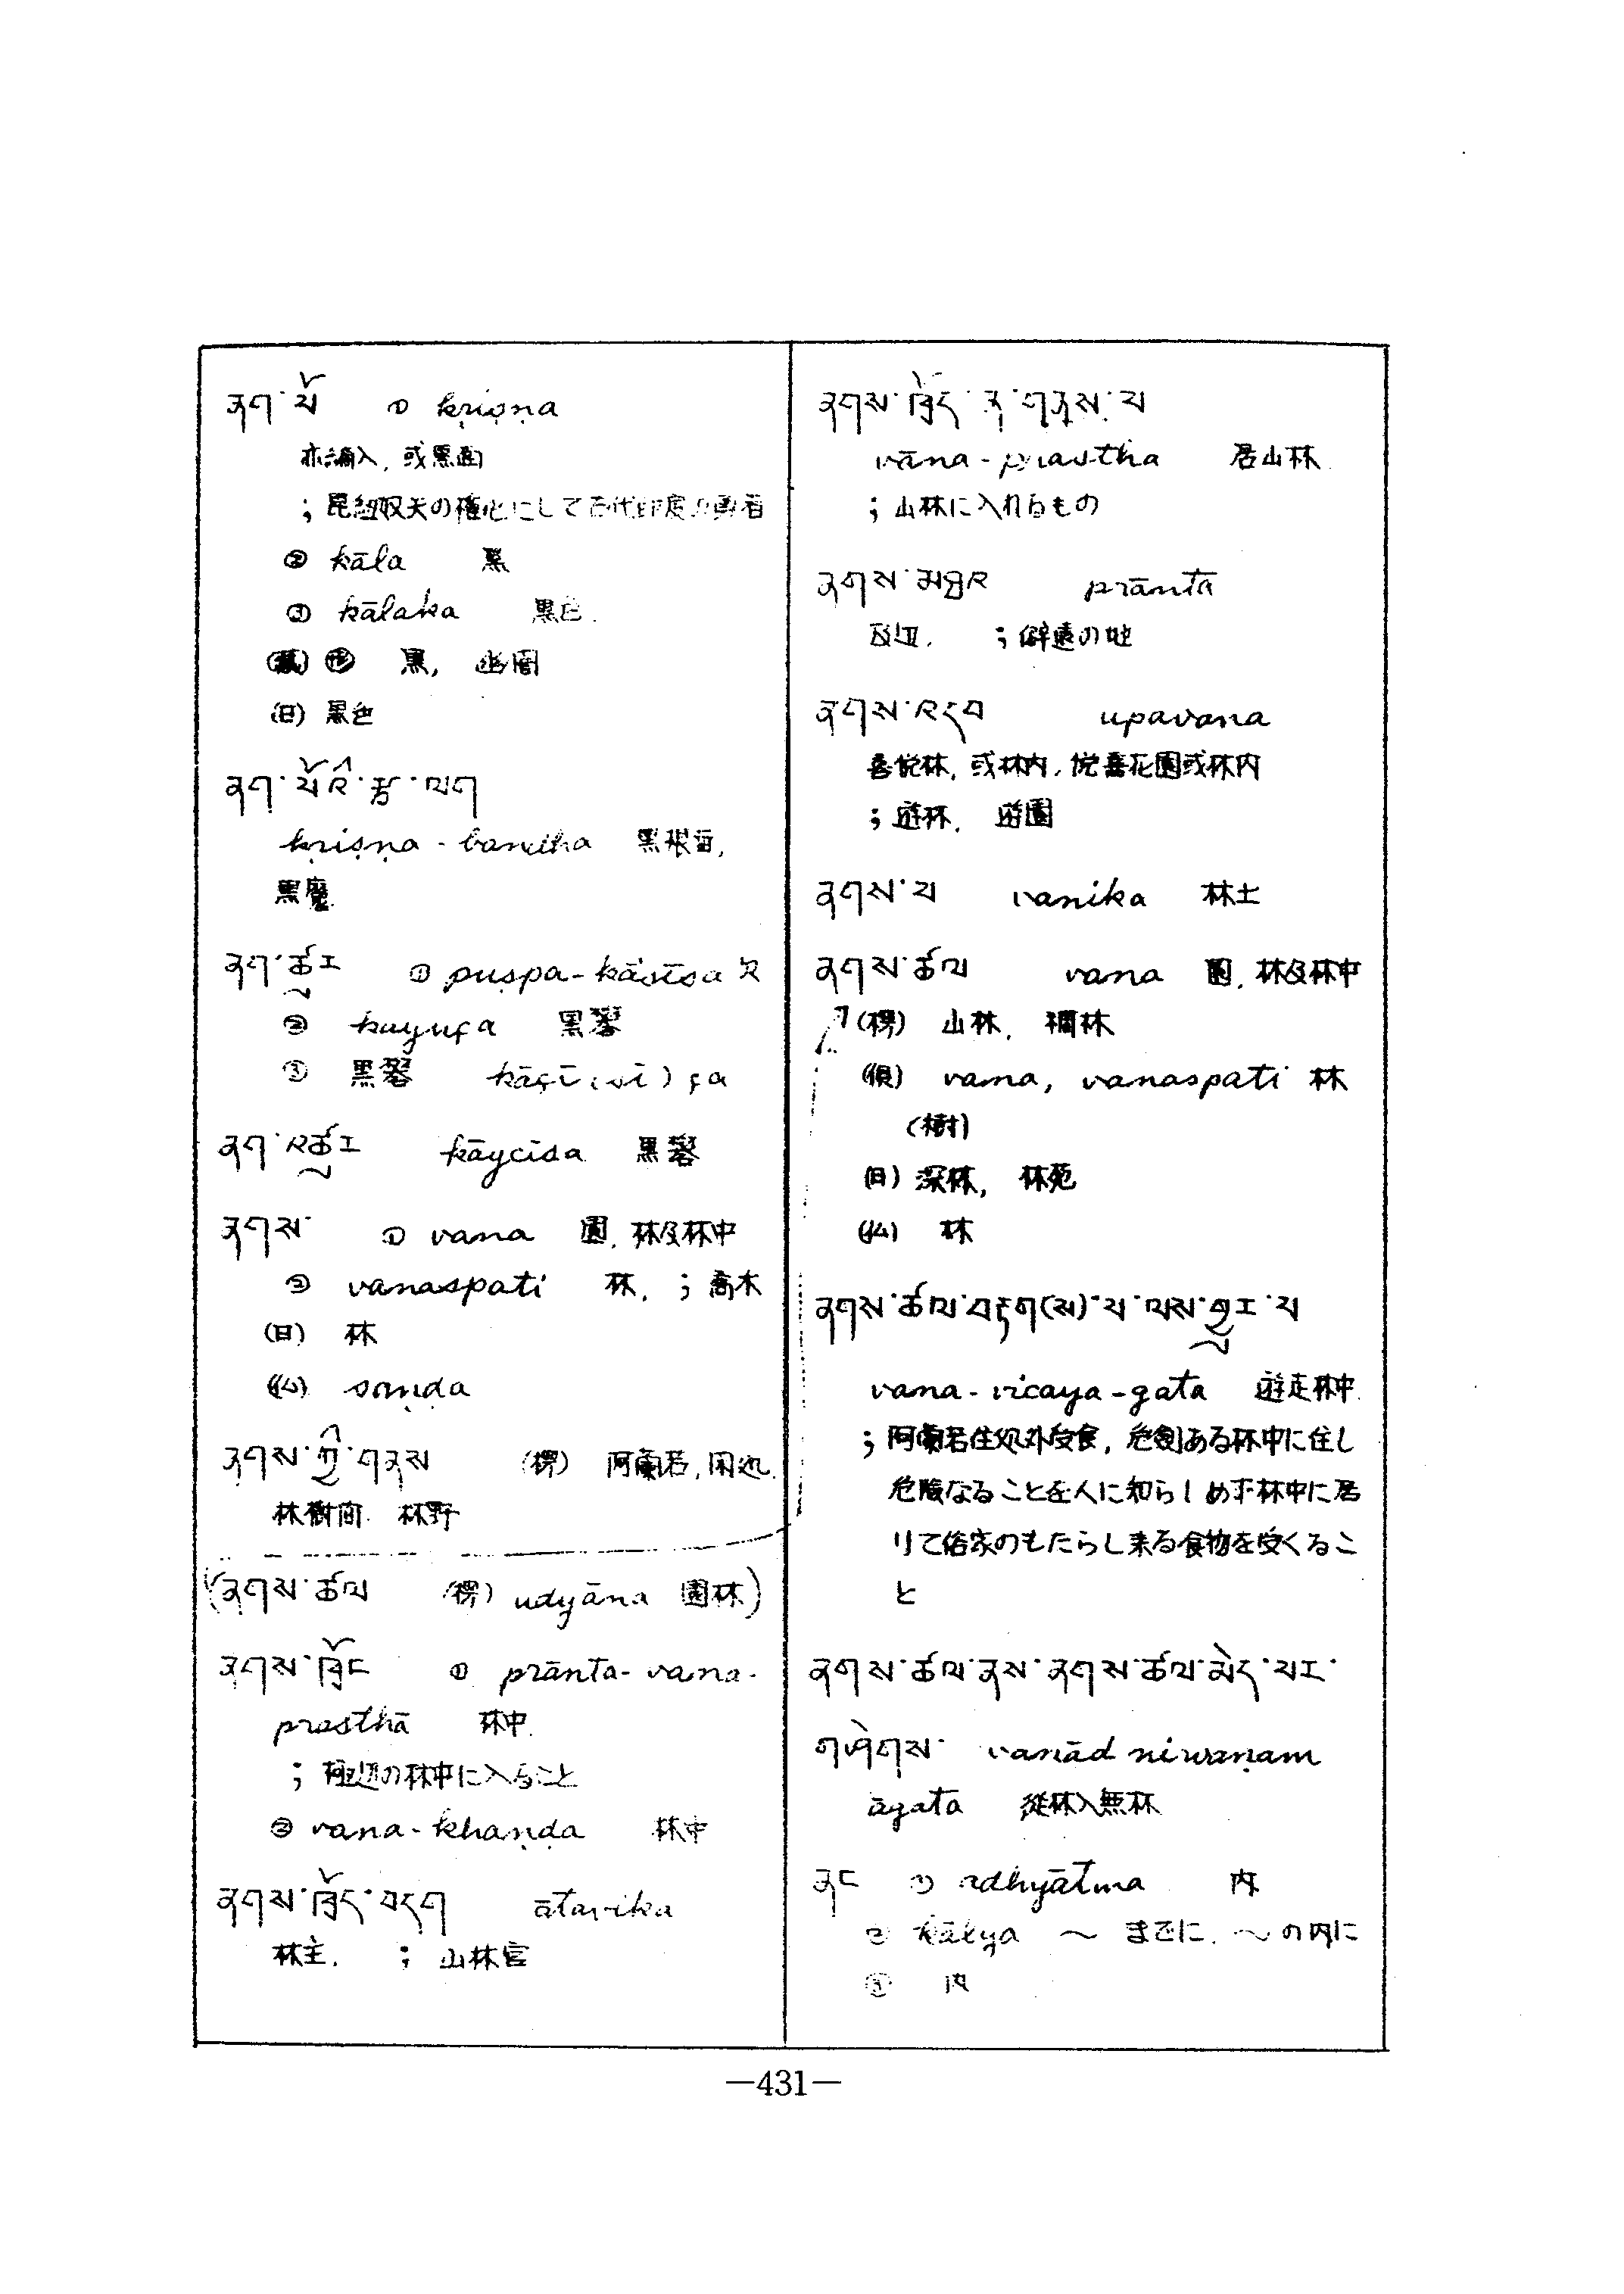 ནག་པོ ① kṛiṣṇa
亦編入, 或黒画
; 毘紐奴天の権化にして古代印度の勇者
② kāla 黒
③ kālaka 黒色.
(蔵) 形 黒, 幽闇
(日) 黒色
ནག་པོའི་རྩ་ལག
kṛiṣṇa - bandha 黒根首,
黒魔
ནག་ཚུར ① puṣpa-kāsīsa 又
② kayuça 黒礬
③ 黒礬 kāçī(sī)ça
ནག་འཚུར kāycisa 黒礬
ནགས་ ① vana 園, 林及林中
② vanaspati 林, ; 喬木
(日) 林
(仏) saṇḍa
ནགས་ཀྱི་གནས (楞) 阿蘭若, 閑処,
林樹間 林野
(ནགས་ཚལ (楞) udyāna 園林)
ནགས་ཁྲོད ① prānta-vana-
prasthā 林中.
; 極辺の林中に入ること
② vana-khaṇḍa 林中
ནགས་ཁྲོད་བདག āṭavika
林主. ; 山林官
ནགས་ཁྲོད་ན་གནས་པ
vāna-prastha 居山林.
; 山林に入れるもの
ནགས་མཐའ prānta
; 僻遠の地
ནགས་འདབ upavana
喜悦林, 或林内, 悦喜花園或林内
; 遊林, 遊園
ནགས་པ vanika 林士
ནགས་ཚལ vana 園, 林及林中
(楞) 山林, 稠林
(倶) vana, vanaspati 林
(樹)
(日) 深林, 林苑
(仏) 林
ནགས་ཚལ་བརྟག(ས)་པ་ལས་གྱུར་པ
vana-vicaya-gata 遊走林中.
; 阿蘭若住処外受食, 危剣ある林中に住し
危険なることを人に知らしめず林中に居
りて俗家のもたらし来る食物を受くるこ
と
ནགས་ཚལ་ནས་ནགས་ཚལ་མེད་པར་
གཤེགས་ vanād nirvaṇam
āgata 従林入無林
ནང ① adhyātma 内
② kālya ～ までに, ～の内に
③ 内
—431—